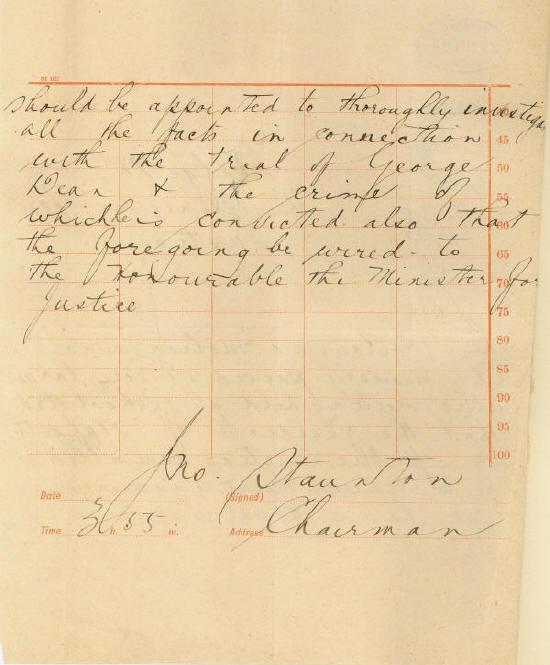 should be appointed to thoroughly investiga
all the facts in connection 45
with the trial of George 50
Dean & the crime of 55
which he is convicted also that 60
the foregoing be wired to 65
the Honourable the Minister for 70
Justice 75
80
85
90
95
100
Jno. Staunton
Date (Signed)
Chairman
Time 3 h. 55 m. Address